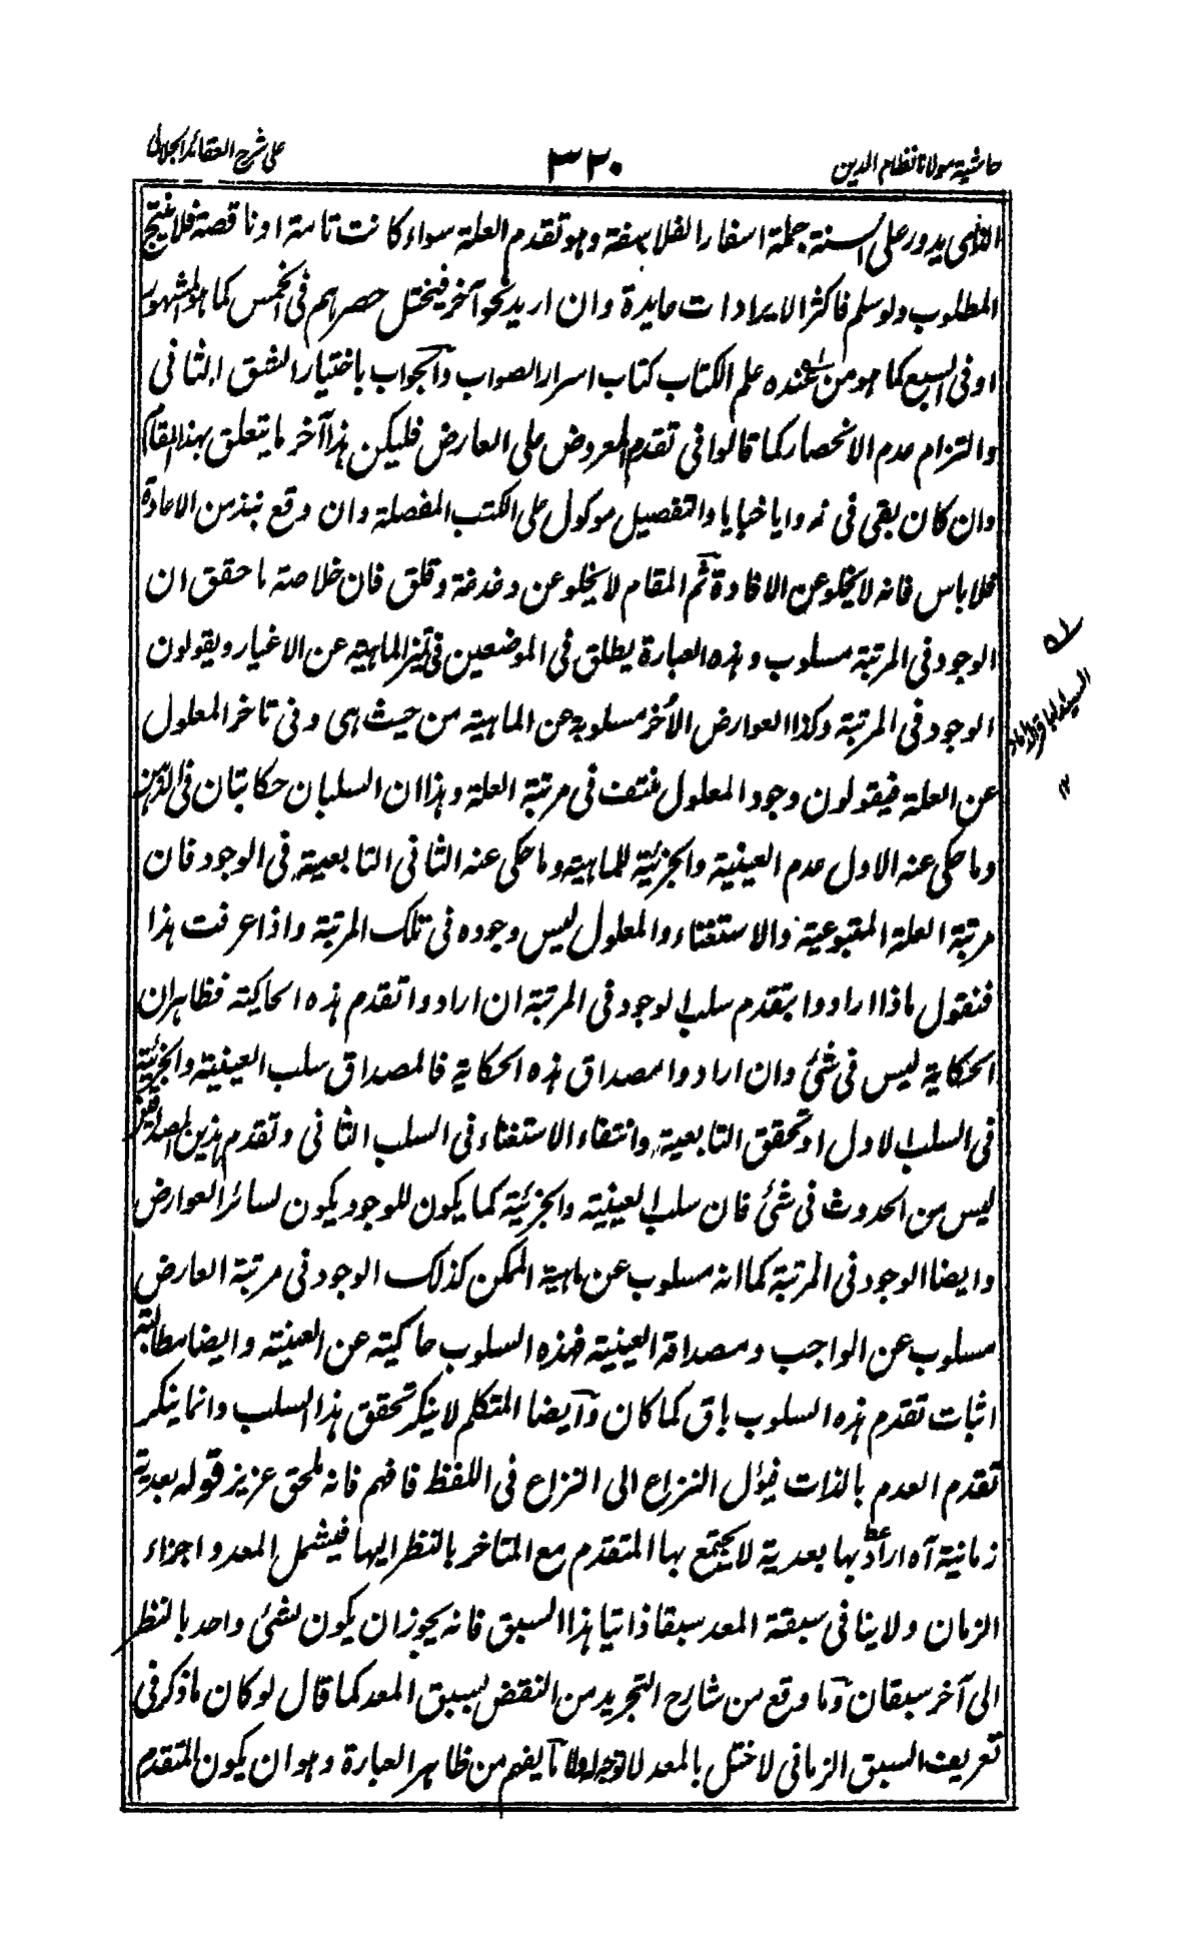 حاشية مولانا نظام الدين
٣٢٠
على شرح العقائد الجلالى
الذى يدور على السنة جملة اسفار الفلاسفة وهو تقدم العلة سواء كانت تامة او ناقصة فلا ينتج
المطلوب ولو سلم فاكثر الايرادات عايدة وان اريد نحو آخر فيختل حصرهم فى الخمس كما هو المشهور
او فى السبع كما هو من عنده علم الكتاب كتاب اسرار الصواب والجواب باختيار الشق الثانى
والتزام عدم الانحصار كما قالوا فى تقدم المعروض على العارض فليكن هذا آخر ما يتعلق بهذا المقام
وان كان بقى فى زوايا خبايا والتفصيل موكول على الكتب المفصلة وان وقع نبذ من الاعادة
فلا باس فانه لا يخلو عن الافادة ثم المقام لا يخلو عن دغدغة وقلق فان خلاصة ما حقق ان
الوجود فى المرتبة مسلوب وهذه العبارة يطلق فى الموضعين فى تميز الماهية عن الاغيار ويقولون
الوجود فى المرتبة وكذا العوارض الأخر مسلوبة عن الماهية من حيث هى وفى تاخر المعلول
عن العلة فيقولون وجود المعلول منتف فى مرتبة العلة وهذا ان السلبان حكايتان فى الذهن
وما حكى عنه الاول عدم العينية والجزئية للماهية وما حكى عنه الثانى التابعية فى الوجود فان
مرتبة العلة المتبوعية والاستغناء والمعلول ليس وجوده فى تلك المرتبة واذا عرفت هذا
فنقول ماذا ارادوا بتقدم سلب الوجود فى المرتبة ان ارادوا تقدم هذه الحاكية فظاهر ان
الحكاية ليس فى شئ وان ارادوا مصداق هذه الحكاية فالمصداق سلب العينية والجزئية
فى السلب الاول او تحقق التابعية وانتفاء الاستغناء فى السلب الثانى وتقدم هذين المصداقين
ليس من الحدوث فى شئ فان سلب العينية والجزئية كما يكون للوجود يكون لسائر العوارض
وايضا الوجود فى المرتبة كما انه مسلوب عن ماهية الممكن كذلك الوجود فى مرتبة العارض
مسلوب عن الواجب ومصداقه العينية فهذه السلوب حاكية عن العينية وايضا مطالبة
اثبات تقدم هذه السلوب باق كما كان وآيضا المتكلم لا ينكر تحقق هذا السلب وانما ينكر
تقدم العدم بالذات فيؤل النزاع الى النزاع فى اللفظ فافهم فانه ملحق عزيز قوله بعدية
زمانية آه اراد بها بعدية لا يجتمع بها المتقدم مع المتاخر بالنظر اليها فيشمل المعد واجزاء
الزمان ولا ينافى سبقة المعد سبقا ذاتيا هذا السبق فانه يجوز ان يكون لشئ واحد بالنظر
الى آخر سبقان وما وقع من شارح التجريد من النقض بسبق المعد كما قال لو كان ما ذكر فى
تعريف السبق الزمانى لا ختل بالمعد لا توجه له لا يفهم من ظاهر العبارة وهو ان يكون المتقدم
له
السيد الباقر الداماد
١٢